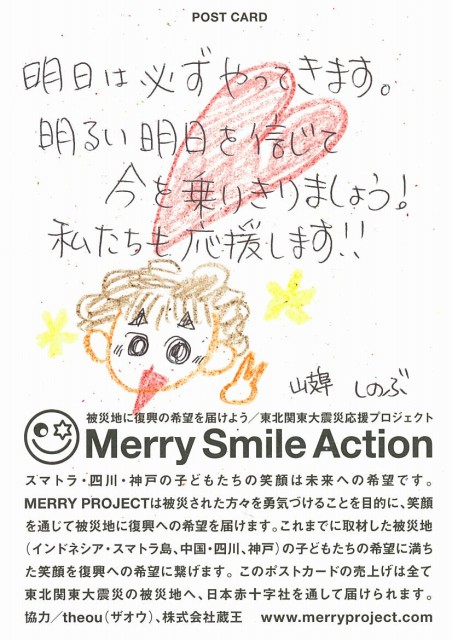 POST CARD
明日は必ずやってきます。
明るい明日を信じて
今を乗りきりましょう！
私たちも応援します!!
しのぶ
被災地に復興の希望を届けよう／東北関東大震災応援プロジェクト
Merry Smile Action
スマトラ・四川・神戸の子どもたちの笑顔は未来への希望です。
MERRY PROJECTは被災された方々を勇気づけることを目的に、笑顔
を通じて被災地に復興への希望を届けます。これまでに取材した被災地
（インドネシア・スマトラ島、中国・四川、神戸）の子どもたちの希望に満ち
た笑顔を復興への希望に繋げます。このポストカードの売上げは全て
東北関東大震災の被災地へ、日本赤十字社を通して届けられます。
協力／theou（ザオウ）、株式会社蔵王　www.merryproject.com